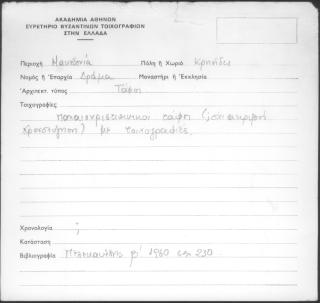 ΑΚΑΔΗΜΙΑ ΑΘΗΝΩΝ
ΕΥΡΕΤΗΡΙΟ ΒΥΖΑΝΤΙΝΩΝ ΤΟΙΧΟΓΡΑΦΙΩΝ
ΣΤΗΝ ΕΛΛΑΔΑ
Περιοχή Μακεδονία Πόλη ή Χωριό Κρηνίδες
Νομός ή Επαρχία Δράμα Μοναστήρι ή Εκκλησία
Αρχιτεκτ. τύπος Τάφοι
Τοιχογραφίες:
παλαιοχριστιανικοί τάφοι
με τοιχογραφίες.
Χρονολογία ;
Κατάσταση
Βιβλιογραφία β' 1960 σελ 230